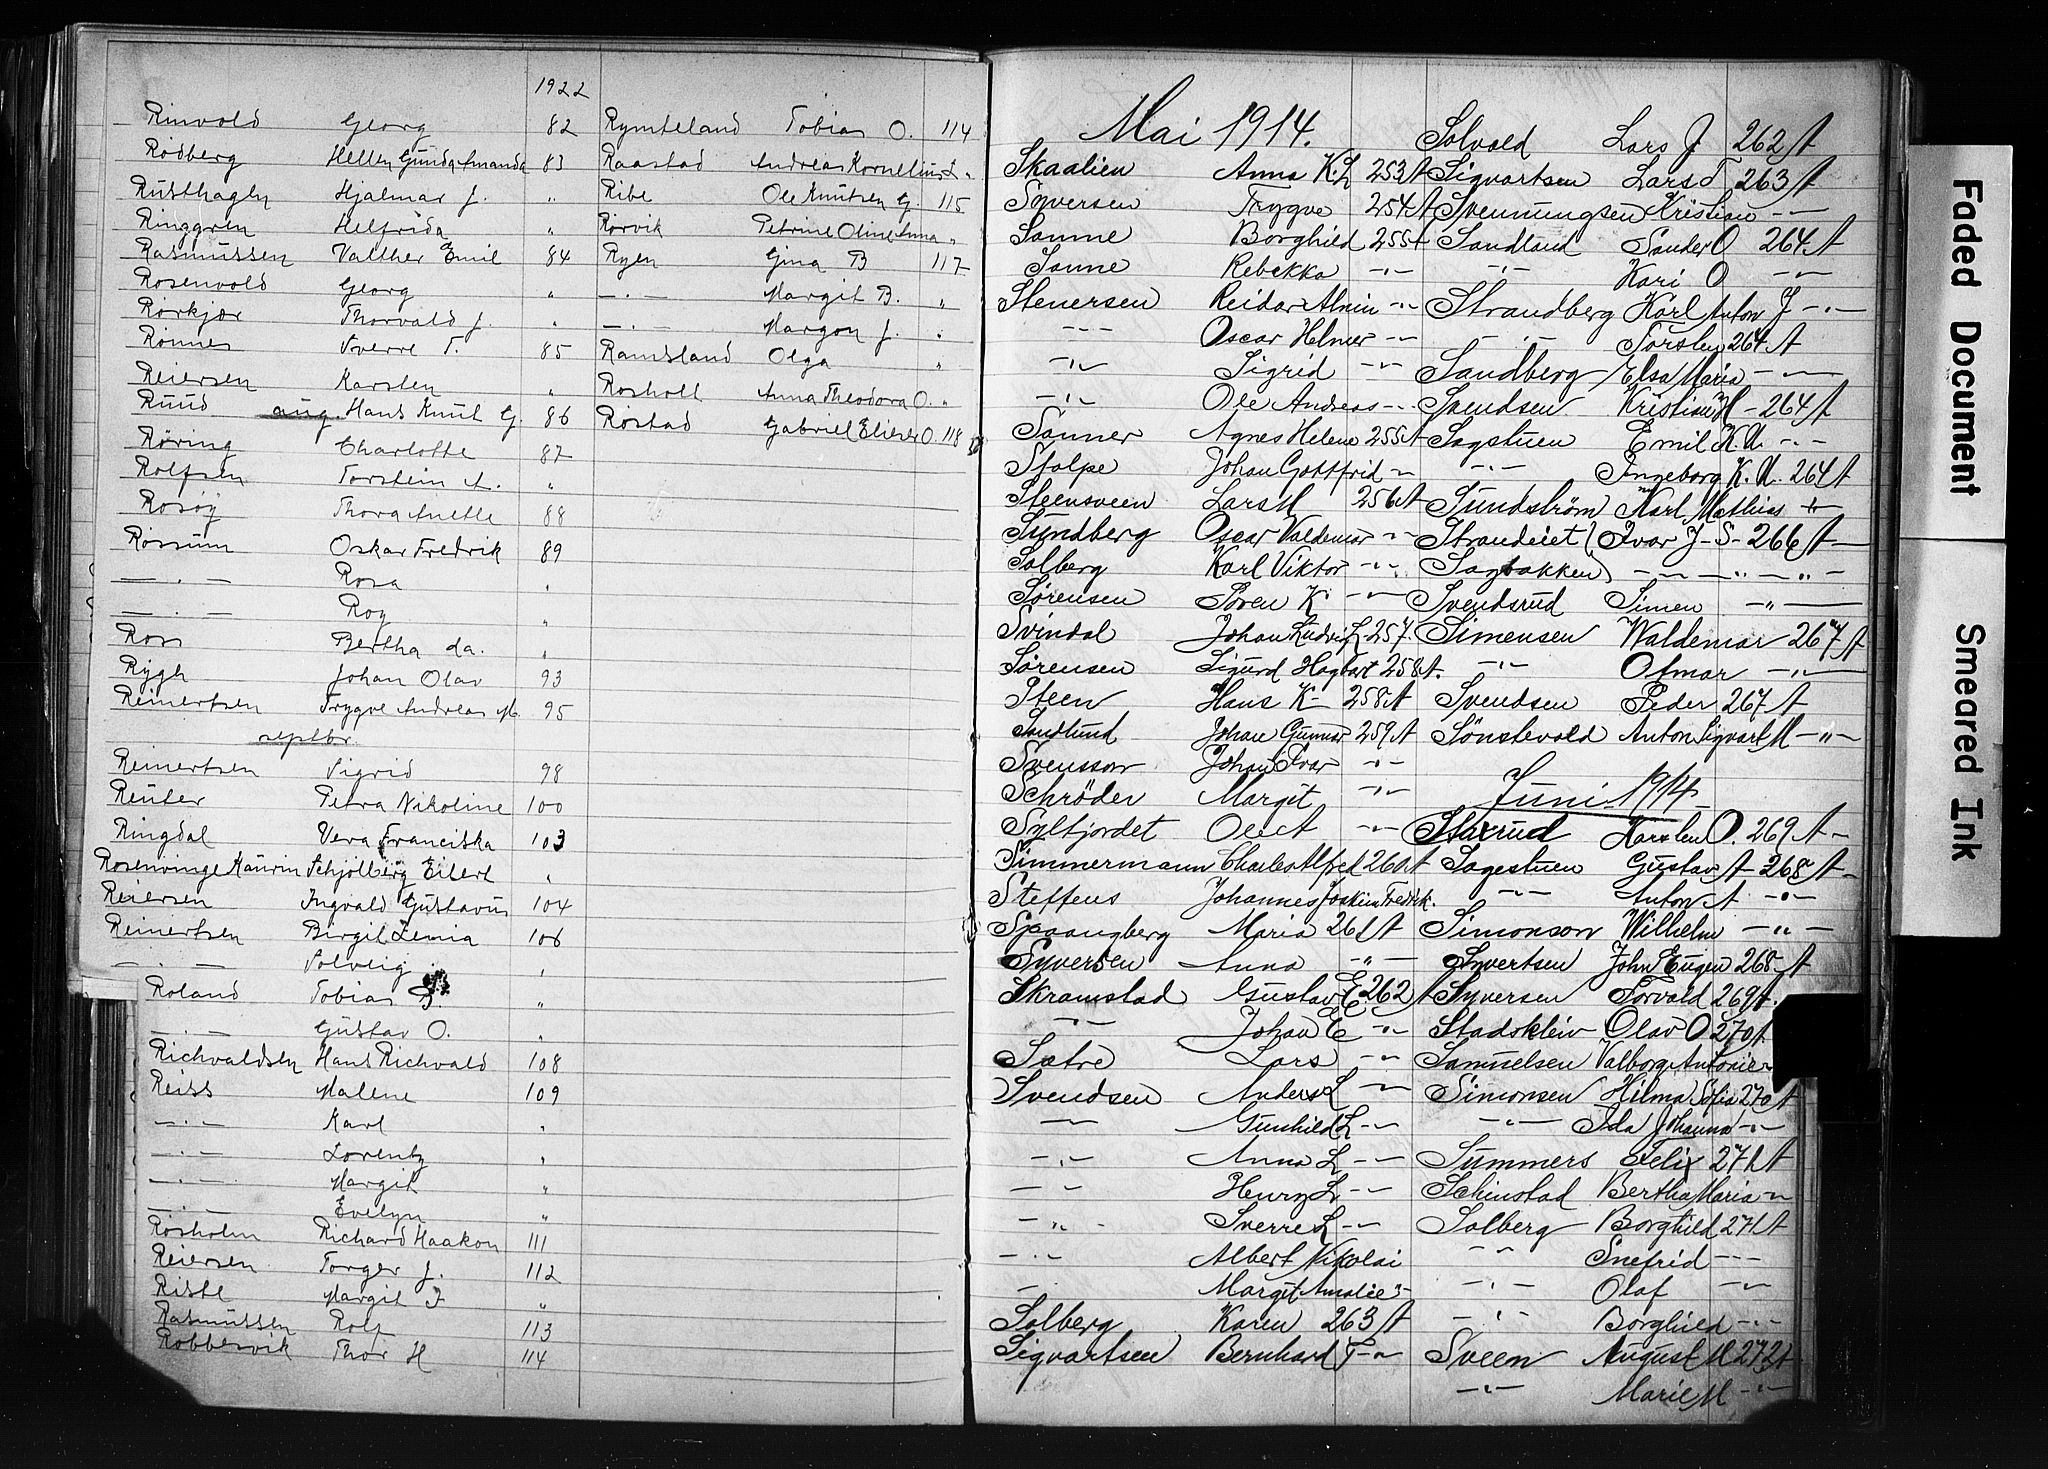 1922
Rinvold Georg 82
Rodberg Hellen Gunda Amanda 83
Rusthagen Hjalmar J. "
Ringgren Helfrida "
Rasmussen Valther Emil 84
Rosenvold Georg "
Rørkjær Thorvald J. "
Rønnes Sverre T. 85
Reiersen Karsten "
Ruud aug. Hans Knut G. 86
Røring Charlotte 87
Rolfsen Torstein A. "
Rosøy Thora Anette 88
Røssum Oskar Fredrik 89
— . — Rosa "
— . — Roy "
Ross Bertha da. "
Rygh Johan Olav 93
Reinertsen Trygve Andreas M. 95
septbr.
Reinertsen Sigrid 98
Reuter Petra Nikoline 100
Ringdal Vera Franciska 103
Rosenvinge Kaurin Schjølberg Eilert "
Reiersen Ingvald Gustavus 104
Reinertsen Birgit Zemia 106
— . — Solveig "
Roland Tobias "
— . — Gustav O. "
Richvaldsen Hans Richvald 108
Reiss Malene 109
— . — Karl "
— . — Lorentz "
— . — Margit "
— . — Evelyn "
Rosholm Richard Haakon 111
Reiersen Torger J. 112
Riste Margit J "
Rasmussen Rolf 113
Robbesvik Thor H 114
Rymteland Tobias O. 114
Raastad Andreas Kornelius L "
Ribe Ole Knutsen G. 115
Rørvik Petrine Oline Anna "
Ryen Gina B 117
— . — Margit B. "
— . — Margon J. "
Ramsland Olga "
Rosholt Anna Theodora O. "
Røstad Gabriel Elieser O. 118
Mai 1914.
Skaalien Anna K. L 253 A
Syversen Trygve 254 A
Sanne Borghild 255 A
Sanne Rebekka -"-
Stenersen Reidar Almin -"-
-"- Oscar Helmer -"-
-"- Sigrid -"-
-"- Ole Andreas -"-
Sanner Agnes Helene 255 A
Stolpe Johan Gottfrid -"-
Steensveen Lars M 256 A
Sundberg Oscar Valdemar -"-
Solberg Karl Viktor -"-
Sørensen Søren K -"-
Svindal Johan Ludvig L 257.
Sørensen Sigurd Hagbart 258 A.
Steen Hans K 258 A
Sandlund Johan Gunnar 259 A
Svensson Johan Ivar -"-
Schrøder Margit -"-
Syltfjordet Ole A -"-
Simmermann Charles Alfred 260 A
Steffens Johannes Joskim Fredrik.
Spaangberg Maria 261 A
Syversen Anna -"-
Skramstad Gustav E 262 A
-"- Johan E -"-
Sætre Lars -"-
Svendsen Anders L -"-
-"- Gunhild L -"-
-"- Anna L -"-
-"- Henry L -"-
-"- Sverre L -"-
-"- Albert Nikolai
-"- Margit Amalie -"-
Solberg Karen 263 A
Sigvartsen Bernhard T -"-
Solvold Lars J 262 A
Sigvartsen Lars T 263 A
Svennungsen Kristian -"-
Sandland Sander O 264 A
-"- Kari O -"-
Strandberg Karl Anton J -"-
-"- Torsten 264 A
Sandberg Elsa Maria -"-
Svendsen Kristian H - 264 A
Sagstuen Emil K. A. -"-
-"- Ingeborg K. A. 264 A
Sundstrøm Karl Mathias -"-
Strandeiet (Ivar J - S - 266 A
Sagbakken) -"-
Svendsrud Simen -"-
Simensen Waldemar 267 A
-"- Otmar -"-
Svendsen Peder 267 A
Sønstevold Anton Sigvart M -"-
Juni 1914
Staxrud Karsten O. 269 A
Sagestuen Gustav A 268 A
-"- Anton A -"-
Simonson Wilhelm -"-
Sivertsen John Eugen 268 A
Syversen Torvald 269 A.
Stadskleiv Olav O 270 A
Samuelsen Valborg Antonie
Simonsen Hilma Sofia 270 A
-"- Ida Johanna -"-
Summers Felix 271 A
Schinstad Bertha Maria -"-
Solberg Borghild 271 A
-"- Snefrid -"-
-"- Olaf -"-
-"- Borghild -"-
Sveen August M 272 A
-"- Marie M -"-
Faded Document
Smeared Ink